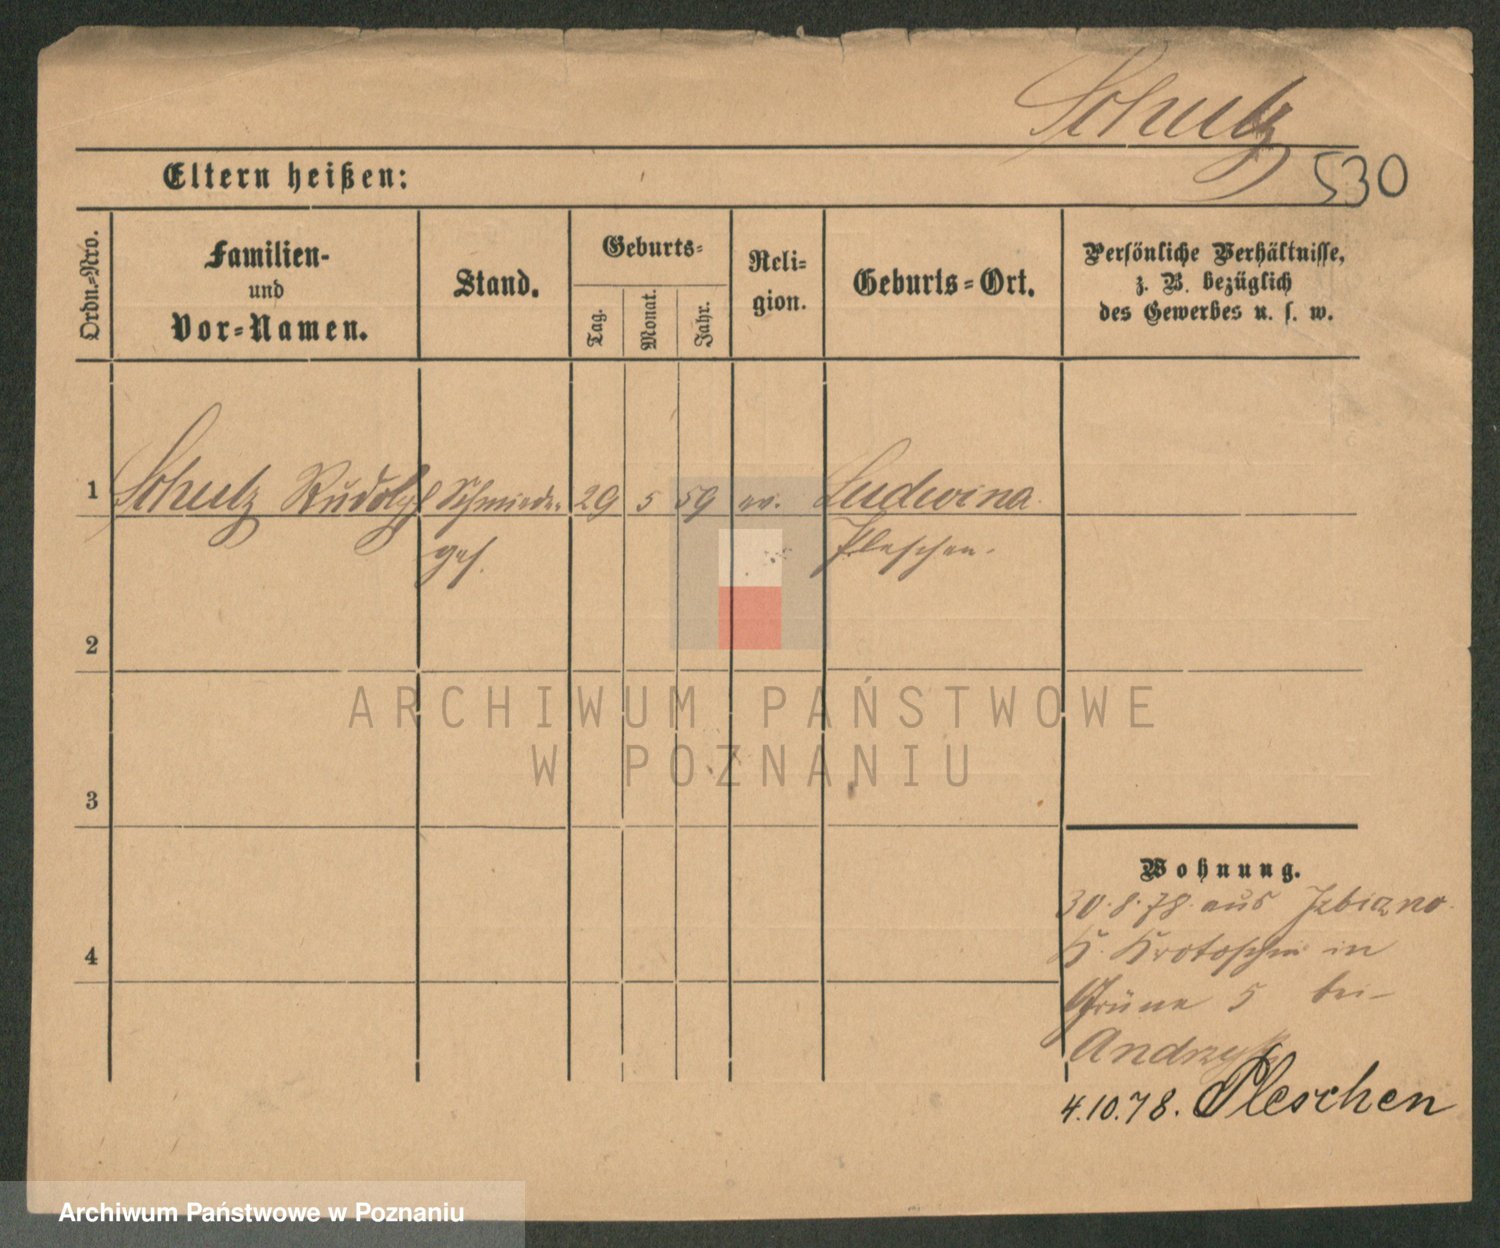 Schulz
530
Eltern heißen:
Ordn.-Nro.
Familien-
und
Vor-Namen.
Stand.
Geburts-
Tag.
Monat.
Jahr.
Reli-
gion.
Geburts-Ort.
Persönliche Verhältnisse,
z. B. bezüglich
des Gewerbes u. s. w.
1 Schulz Rudolph Schmiede- 29 5 59 ev. Ludwina
ges. Pleschen.
2
ARCHIWUM PAŃSTWOWE
W POZNANIU
3
Wohnung.
30.8.78. aus
4
K. Krotoschin in
Grüne 5 bei
4.10.78. Pleschen
Archiwum Państwowe w Poznaniu